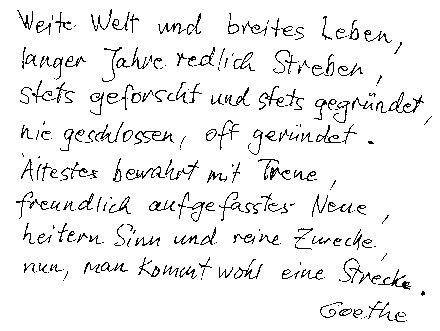 Weite Welt und breites Leben,
langer Jahre redlich Streben,
stets geforscht und stets gegründet,
nie geschlossen, oft geründet.
Ältestes bewahrt mit Treue,
freundlich aufgefasstes Neue,
heitern Sinn und reine Zwecke,
nun, man kommt wohl eine Strecke.
Goethe